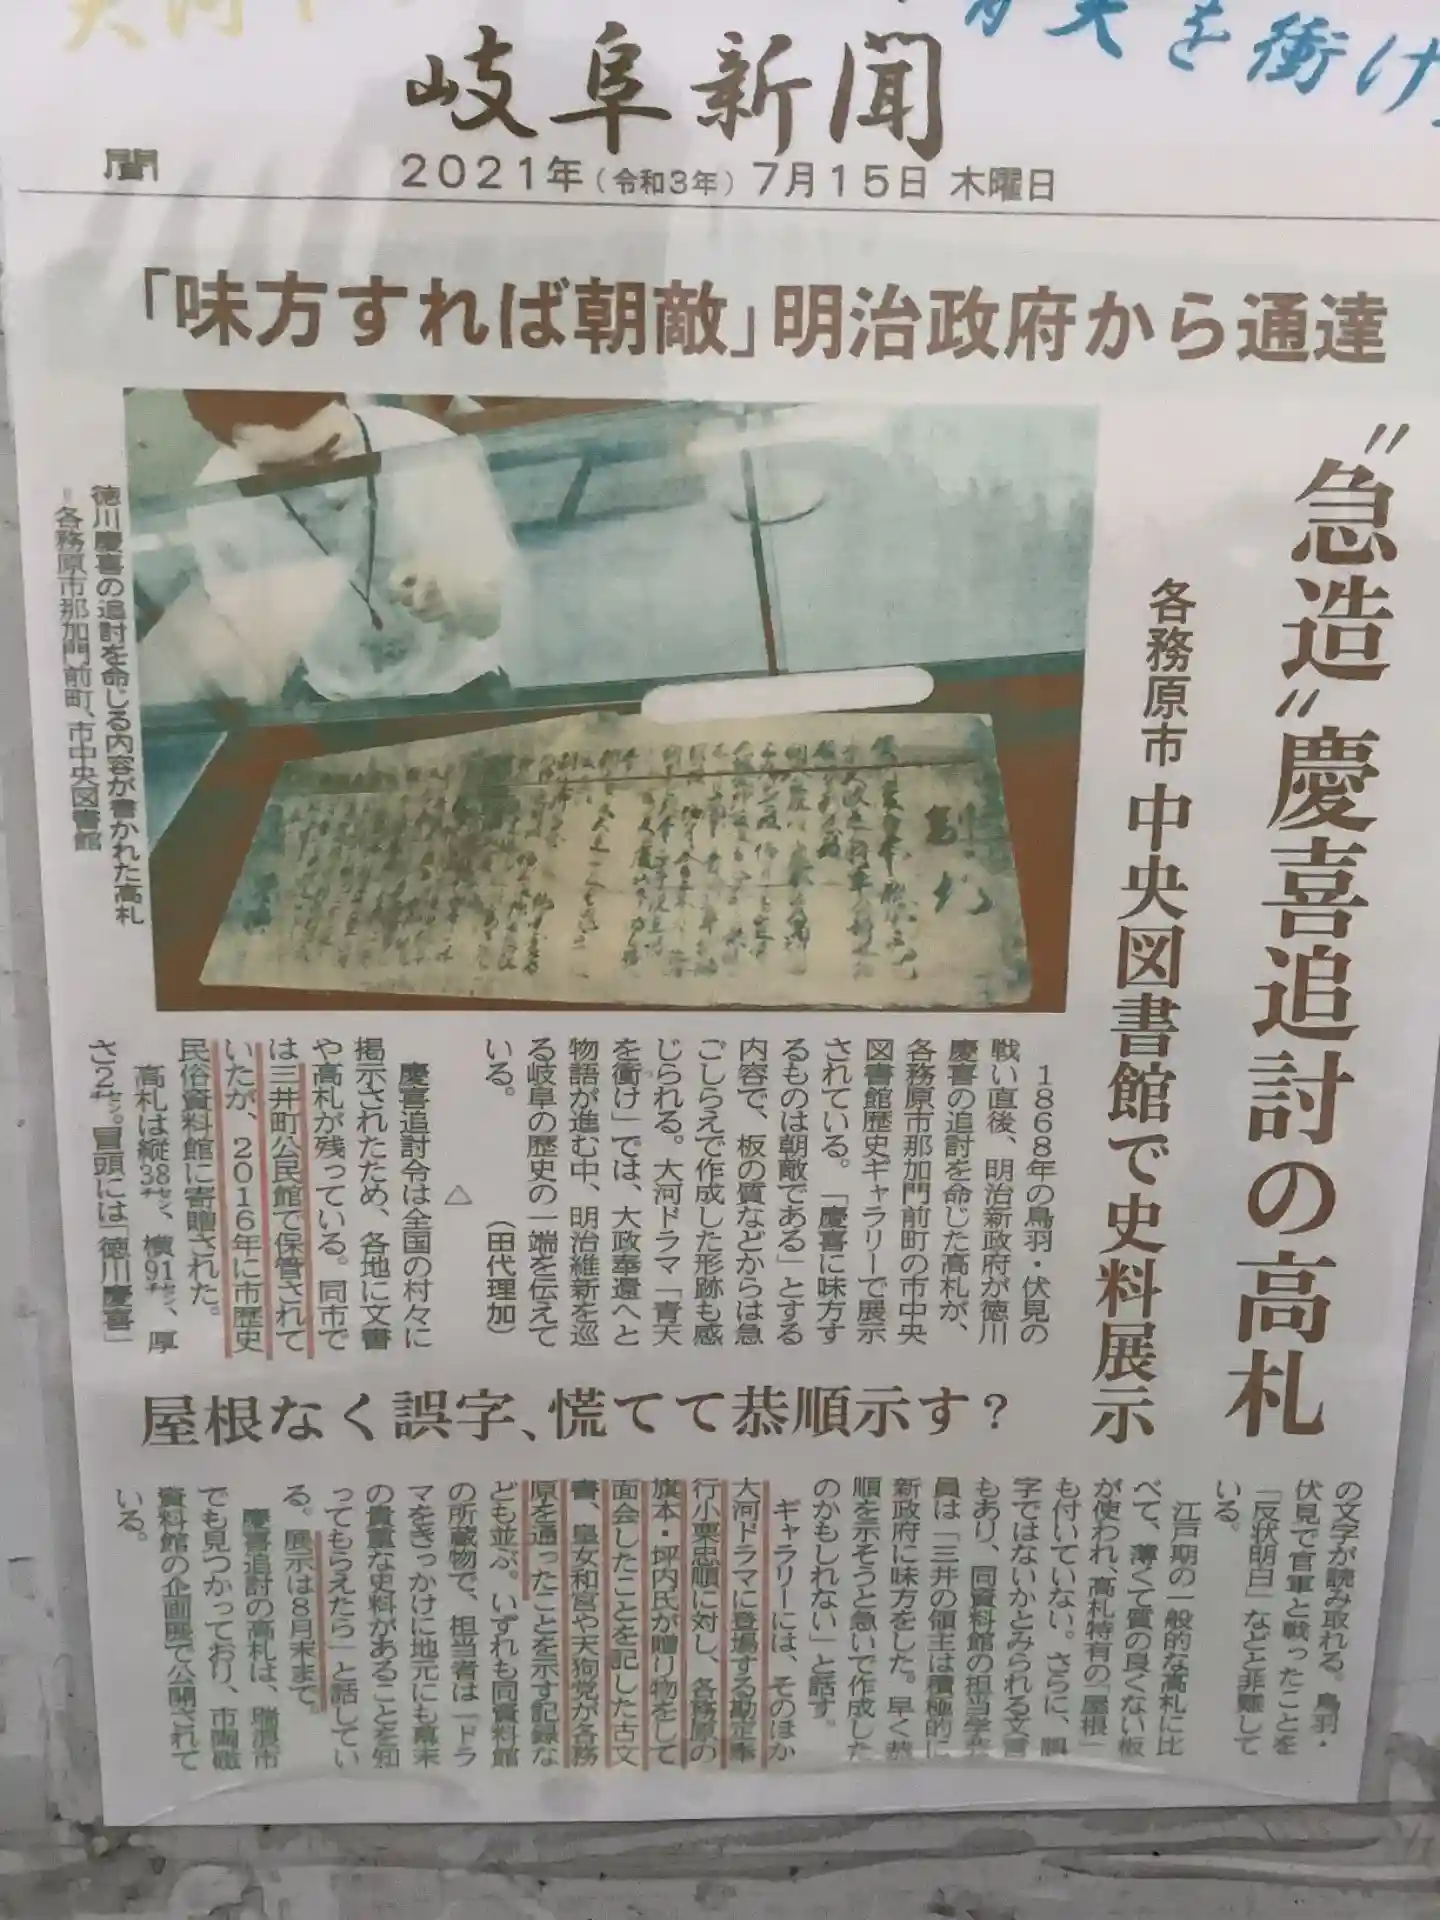 青天を衝け
岐阜新聞
聞
2021年（令和3年）7月15日 木曜日
「味方すれば朝敵」明治政府から通達
〝急造〟慶喜追討の高札
各務原市 中央図書館で史料展示
徳川慶喜の追討を命じる内容が書かれた高札
＝各務原市那加門前町、市中央図書館
1868年の鳥羽・伏見の
戦い直後、明治新政府が徳川
慶喜の追討を命じた高札が、
各務原市那加門前町の市中央
図書館歴史ギャラリーで展示
されている。「慶喜に味方す
るものは朝敵である」とする
内容で、板の質などからは急
ごしらえで作成した形跡も感
じられる。大河ドラマ「青天
を衝け」では、大政奉還へと
物語が進む中、明治維新を巡
る岐阜の歴史の一端を伝えて
いる。
（田代理加）
△
慶喜追討令は全国の村々に
掲示されたため、各地に文書
や高札が残っている。同市で
は三井町公民館で保管されて
いたが、2016年に市歴史
民俗資料館に寄贈された。
高札は縦38㌢、横91㌢、厚
さ2㌢。冒頭には「徳川慶喜」
屋根なく誤字、慌てて恭順示す？
の文字が読み取れる。鳥羽・
伏見で官軍と戦ったことを
「反状明白」などと非難して
いる。
江戸期の一般的な高札に比
べて、薄くて質の良くない板
が使われ、高札特有の「屋根」
も付いていない。さらに、誤
字ではないかとみられる文言
もあり、同資料館の担当学芸
員は「三井の領主は積極的に
新政府に味方をした。早く恭
順を示そうと急いで作成した
のかもしれない」と話す。
ギャラリーには、そのほか
大河ドラマに登場する勘定奉
行小栗忠順に対し、各務原の
旗本・坪内氏が贈り物をして
面会したことを記した古文
書、皇女和宮や天狗党が各務
原を通ったことを示す記録な
ども並ぶ。いずれも同資料館
の所蔵物で、担当者は「ドラ
マをきっかけに地元にも幕末
の貴重な史料があることを知
ってもらえたら」と話してい
る。展示は8月末まで。
慶喜追討の高札は、瑞浪市
でも見つかっており、市陶磁
資料館の企画展で公開されて
いる。